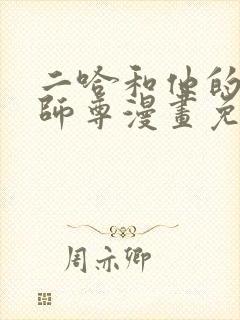 二哈和他的
師尊漫畫免
周亦卿